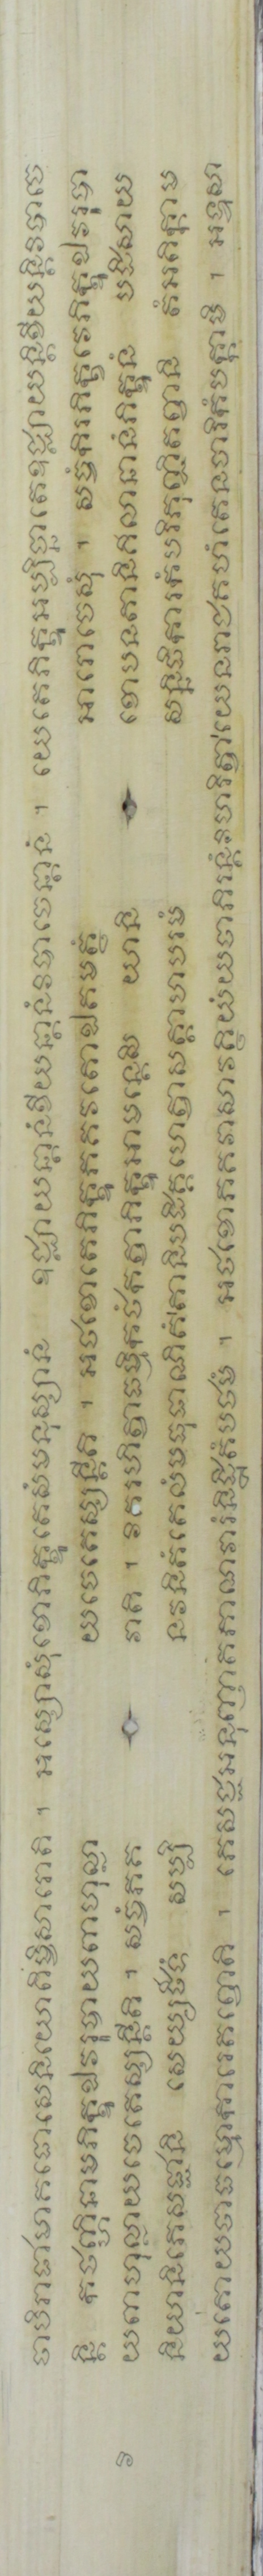 ថាបិរាជាមាគធោសេនិយោពិម្ពិសារោតិ ។ អស្សោសុំខោភិក្ខូតេសំមនុស្សានំ ឧជ្ឈាយន្តានំខីយន្តានំវិបាចេន្តានំ ។ យេតេភិក្ខូអប្បិច្ឆាតេឧជ្ឈាយន្តិខីយន្តិវិបាចេ
ន្តិ កថញ្ហិនាមភិក្ខូឯវរូបាយពាហុល្លា យចេតេស្សន្តីតិ ។ អថខោតេភិក្ខូភគវតោឯតមត្ថំ អារោចេសុំ ។ សច្ចំកិរភិក្ខវេភិក្ខូឯវរូបា
វិ យពាហុល្លាយចេតេស្សន្តីតិ ។ សច្ចំភគ វាតិ ។ វិគរហិត្វាធម្មិកថំកត្វាភិក្ខូអាមន្តេសិ យានិ ខោបនតានិគិលានានំភិក្ខូនំ បដិសាយ
និយានិភេសជ្ជានិ សេយ្យថីទំ សប្បិ នវនិតំតេលំមធុផាណិតំតានិបដិគ្គហេត្វាសត្តាហបរមំ សន្និធិការកំបរិភុញ្ជិតព្វានិ តំអតិក្កាម
យតោយថាធម្មោការេតព្វោតិ ។ ភេសជ្ជអនុញ្ញាតភាណវារំនិដ្ឋិតំបឋមំ ។ អថខោភគវាសាវត្ថិយំយថាភិរន្តំវិហរិត្វាយេនរាជគហំតេនចារិកំបក្កាមិ ។ អទ្ទសា